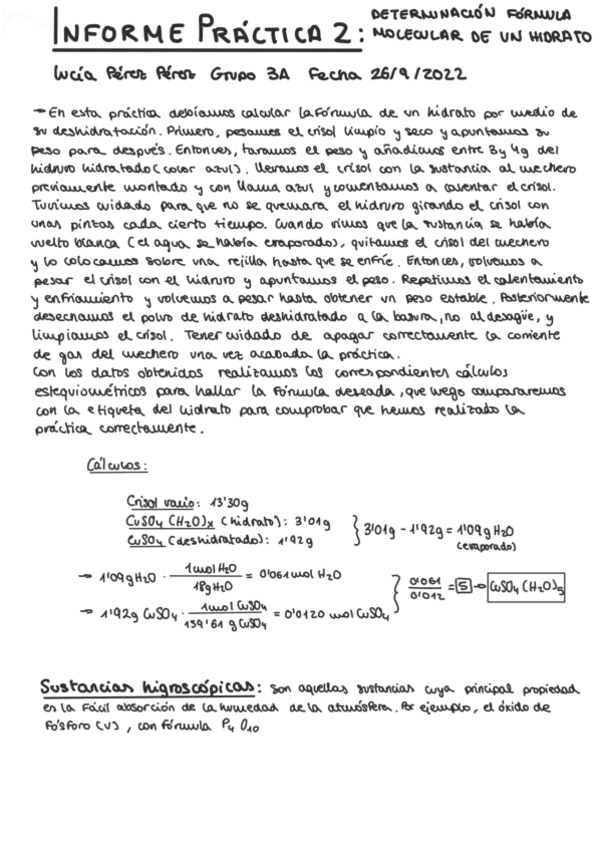 INFORME PRÁCTICA 2: DETERMINACIÓN FÓRMULA
MOLECULAR DE UN HIDRATO
Lucía Pérez Pérez Grupo 3A Fecha 26/9/2022
→ En esta práctica debíamos calcular la fórmula de un hidrato por medio de
su deshidratación. Primero, pesamos el crisol limpio y seco y apuntamos su
peso para después. Entonces, taramos el peso y añadimos entre 3 y 4g del
hidruro hidratado (color azul). Llevamos el crisol con la sustancia al mechero
previamente montado y con llama azul y comentamos a calentar el crisol.
Tuvimos cuidado para que no se quemara el hidruro girando el crisol con
unas pinzas cada cierto tiempo. Cuando vimos que la sustancia se había
vuelto blanca (el agua se había evaporado), quitamos el crisol del mechero
y lo colocamos sobre una rejilla hasta que se enfríe. Entonces, volvemos a
pesar el crisol con el hidruro y apuntamos el peso. Repetimos el calentamiento
y enfriamiento y volvemos a pesar hasta obtener un peso estable. Posteriormente
desechamos el polvo de hidrato deshidratado a la basura, no al desagüe, y
limpiamos el crisol. Tener cuidado de apagar correctamente la corriente
de gas del mechero una vez acabada la práctica.
Con los datos obtenidos realizamos los correspondientes cálculos
estequiométricos para hallar la fórmula deseada, que luego compararemos
con la etiqueta del hidrato para comprobar que hemos realizado la
práctica correctamente.
Cálculos:
Crisol vacío: 13'30g
CuSO4 (H2O)x (hidrato): 3'01g
CuSO4 (deshidratado): 1'92g
} 3'01g - 1'92g = 1'09g H2O
(evaporado)
→ 1'09g H2O · 1mol H2O / 18g H2O = 0'061 mol H2O
→ 1'92g CuSO4 · 1mol CuSO4 / 159'61 g CuSO4 = 0'0120 mol CuSO4
} 0'061 / 0'012 = 5 → CuSO4 (H2O)5
Sustancias higroscópicas: son aquellas sustancias cuya principal propiedad
es la fácil absorción de la humedad de la atmósfera. Por ejemplo, el óxido de
fósforo (V), con fórmula P4 O10